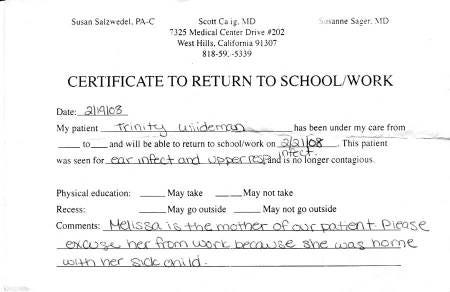 Susan Salzwedel, PA-C Scott Ca ig, MD Susanne Sager, MD
7325 Medical Center Drive #202
West Hills, California 91307
818-59 -5339
CERTIFICATE TO RETURN TO SCHOOL/WORK
Date: 2/19/08
My patient Trinity has been under my care from
to and will be able to return to school/work on 2/21/08 . This patient
was seen for ear infect and upper resp infect. and is no longer contagious.
Physical education: May take May not take
Recess: May go outside May not go outside
Comments: Melissa is the mother of our patient. Please
excuse her from work because she was home
with her sick child.